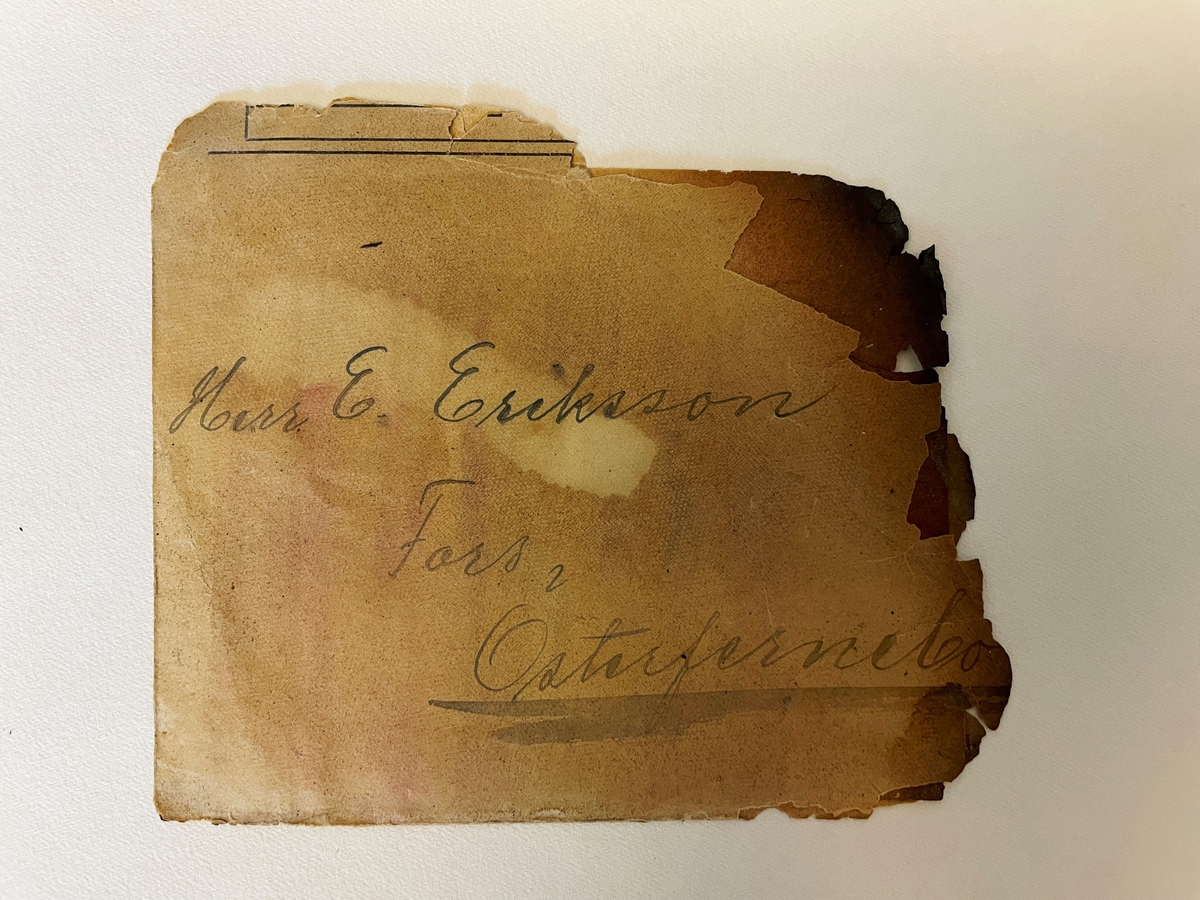 Herr E. Eriksson
Fors,
Osterfernebo